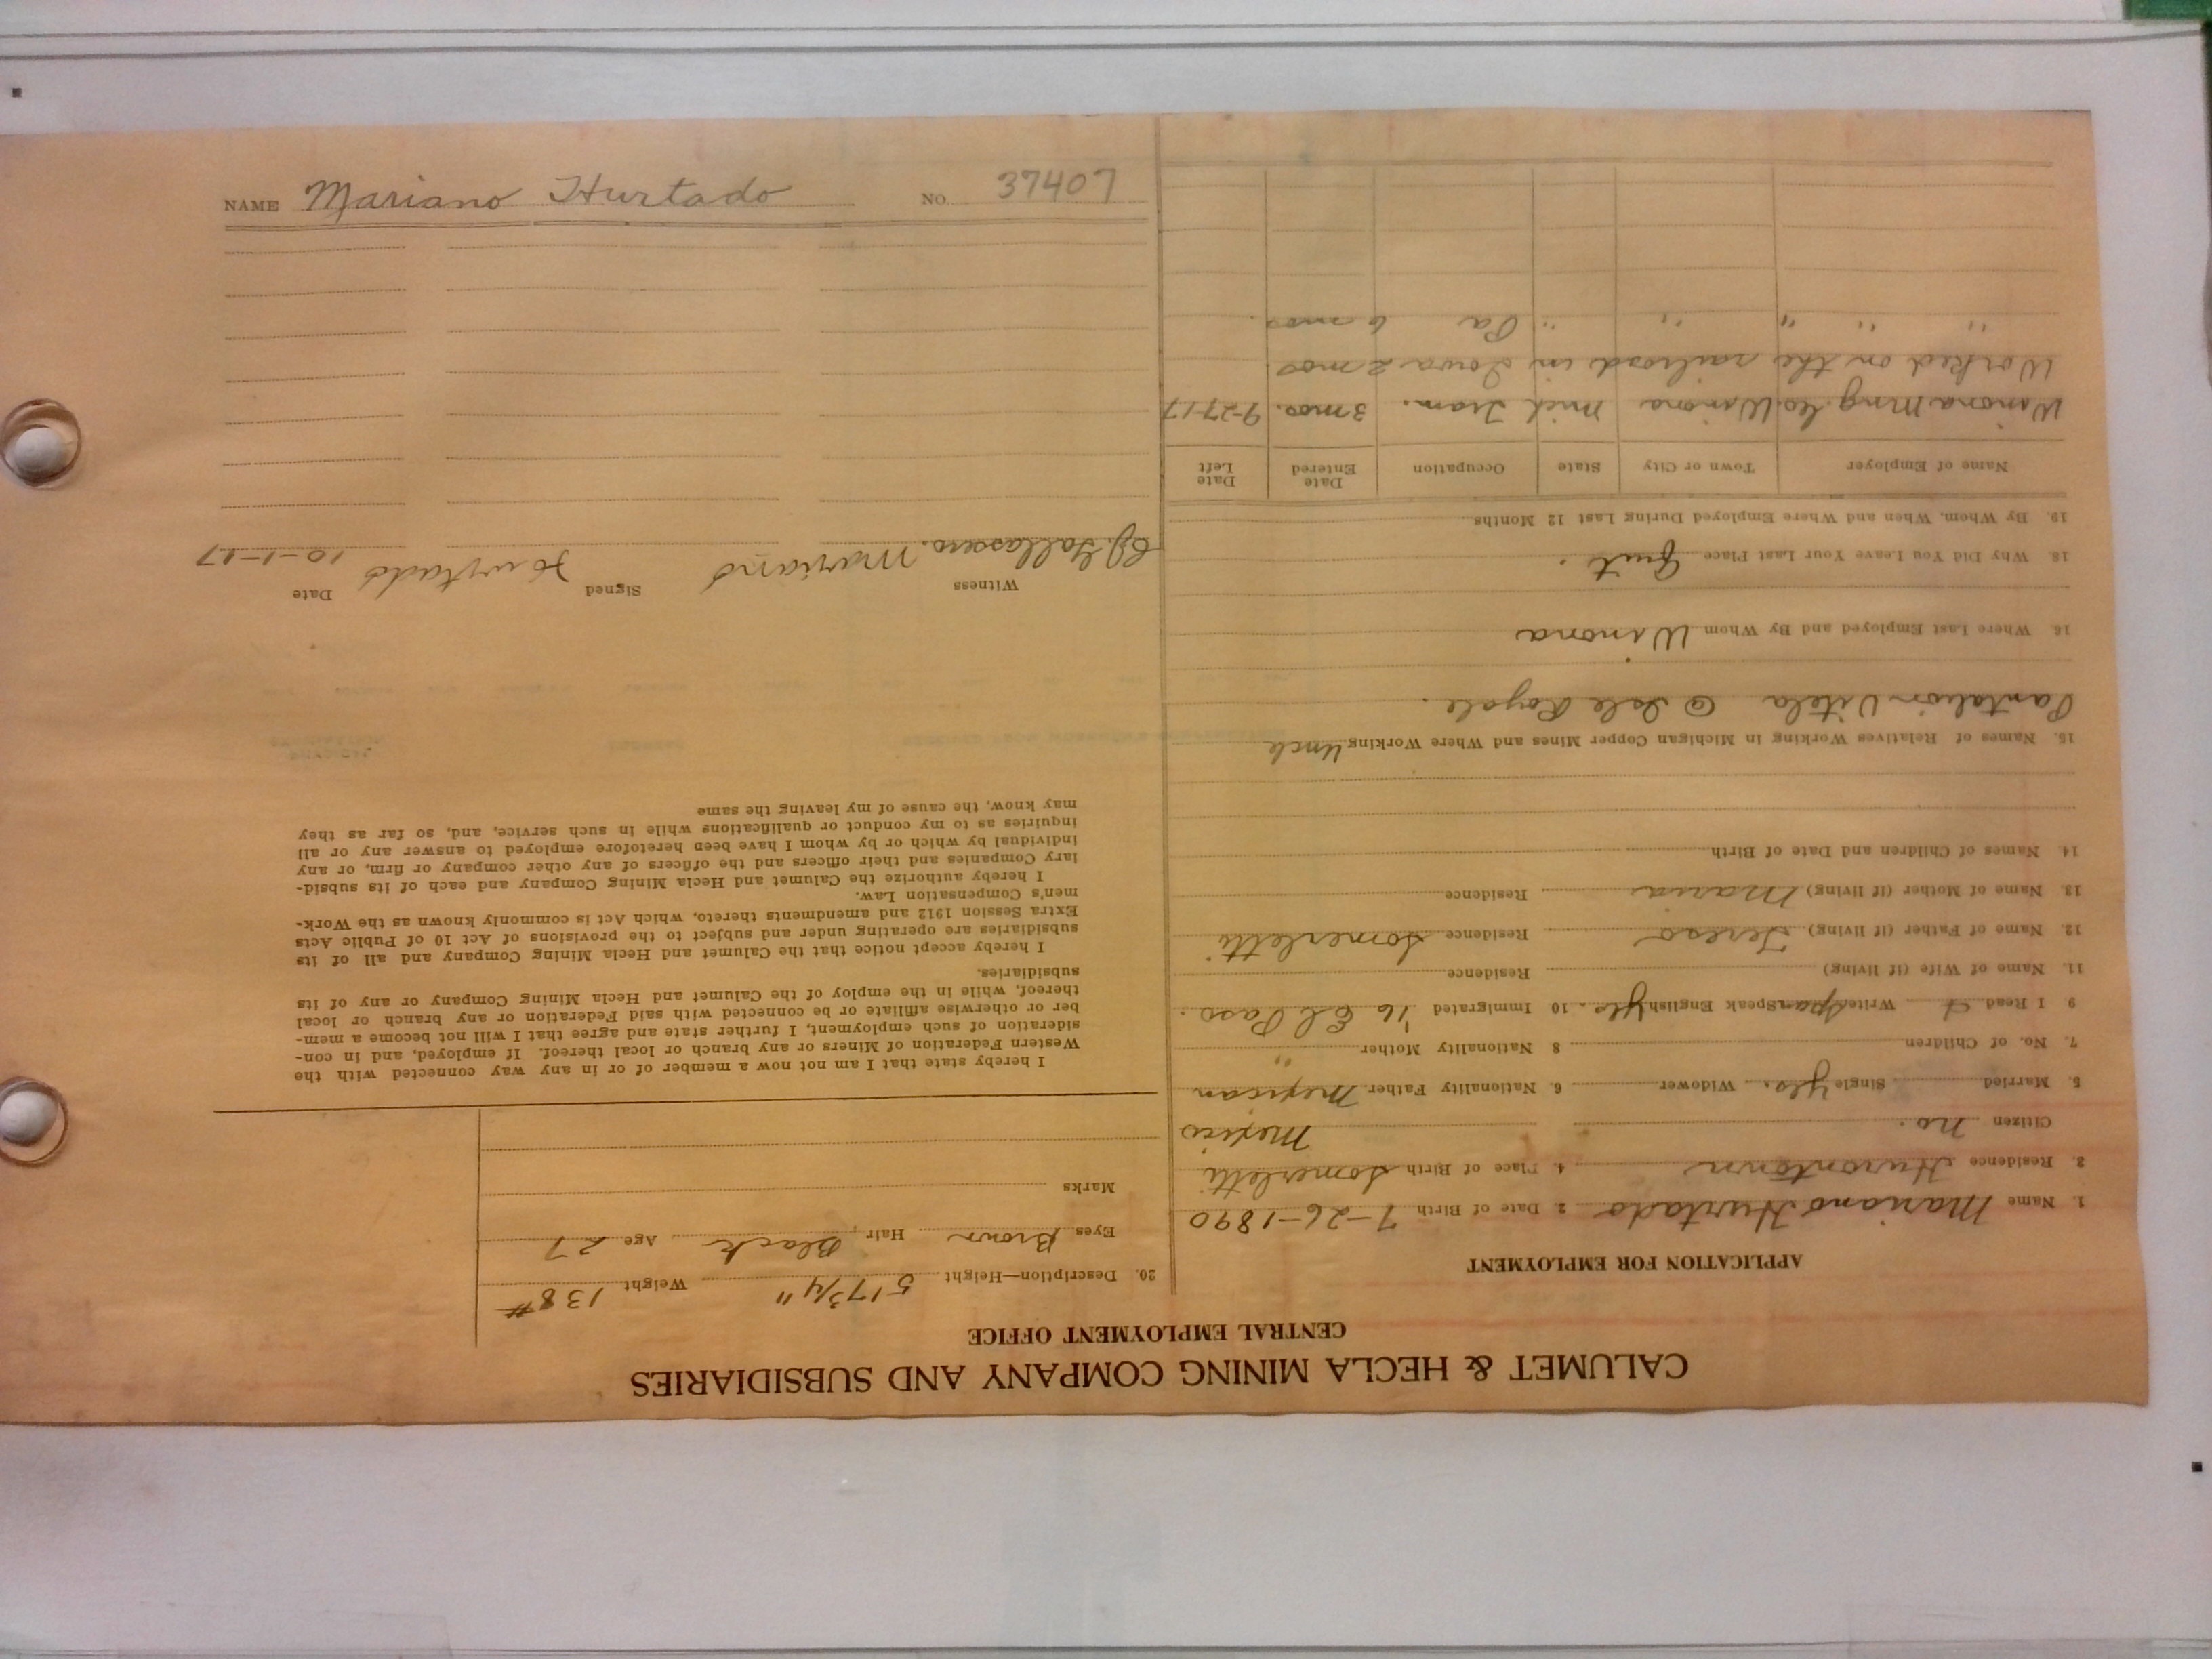 CALUMET & HECLA MINING COMPANY AND SUBSIDIARIES
CENTRAL EMPLOYMENT OFFICE
APPLICATION FOR EMPLOYMENT
1. Name Mariano Hurtado 2. Date of Birth 7-26-1890
3. Residence Hurontown 4. Place of Birth Somerletti
Citizen no. Mexico
5. Married Single yes. Widower 6. Nationality Father Mexican
7. No. of Children 8 Nationality Mother "
9 I Read & Write Span Speak English yes. 10 Immigrated '16 El Paso.
11. Name of Wife (if living) Residence
12. Name of Father (if living) Tereso Residence Somerletti
13. Name of Mother (if living) Maria Residence
14. Names of Children and Date of Birth
15. Names of Relatives Working in Michigan Copper Mines and Where Working Uncle
Pantaleon Vitela @ Isle Royale.
16. Where Last Employed and By Whom Winona
18. Why Did You Leave Your Last Place Quit.
19. By Whom, When and Where Employed During Last 12 Months
Name of Employer Town or City State Occupation Date Entered Date Left
Winona Mng. Co. Winona Mich Tram. 3 mos. 9-27-17
Worked on the railroad in Iowa 2 mos.
" " " " " Pa 6 mos.
20. Description—Height 5'7¾" Weight 138#
Eyes Brown Hair Black Age 27
Marks
I hereby state that I am not now a member of or in any way connected with the
Western Federation of Miners or any branch or local thereof. If employed, and in con-
sideration of such employment, I further state and agree that I will not become a mem-
ber or otherwise affiliate or be connected with said Federation or any branch or local
thereof, while in the employ of the Calumet and Hecla Mining Company or any of its
subsidiaries.
I hereby accept notice that the Calumet and Hecla Mining Company and all of its
subsidiaries are operating under and subject to the provisions of Act 10 of Public Acts
Extra Session 1912 and amendments thereto, which Act is commonly known as the Work-
men's Compensation Law.
I hereby authorize the Calumet and Hecla Mining Company and each of its subsid-
iary Companies and their officers and the officers of any other company or firm, or any
individual by which or by whom I have been heretofore employed to answer any or all
inquiries as to my conduct or qualifications while in such service, and, so far as they
may know, the cause of my leaving the same
Witness Signed Date
Mariano Hurtado 10-1-17
NAME Mariano Hurtado NO. 37407